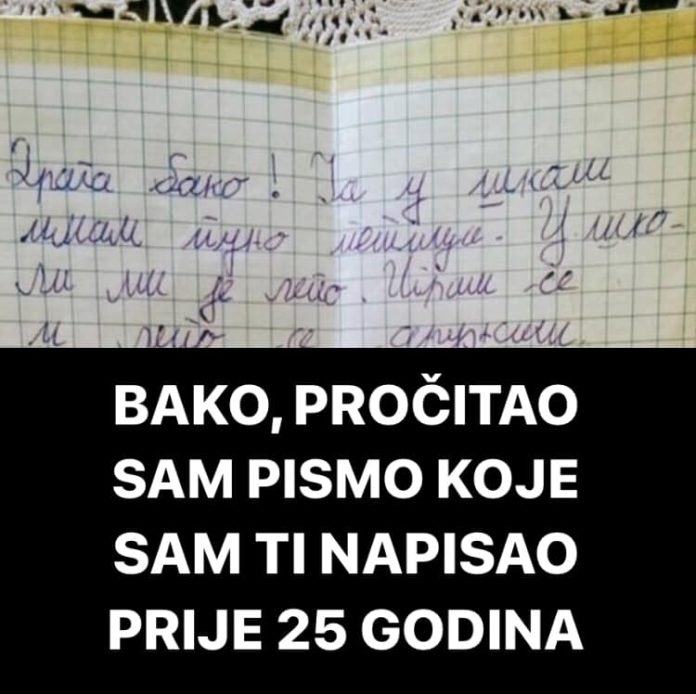 Драга бако! Ја у школи
имам пуно петица. У шко-
ли ми је лепо. Играм се
и лепо се дружим.
BAKO, PROČITAO
SAM PISMO KOJE
SAM TI NAPISAO
PRIJE 25 GODINA